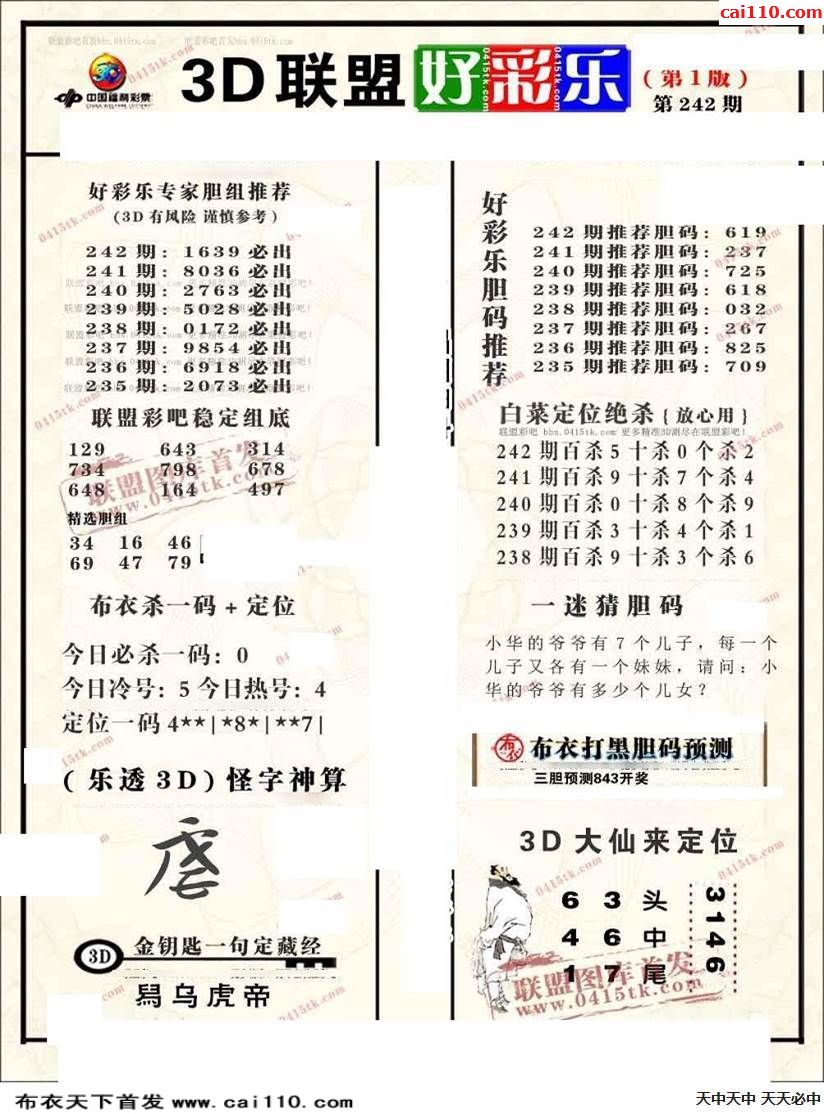 cai110.com
联盟彩吧首发bbs.0415tk.com 联盟彩吧首发bbs.0415tk.com
中国福利彩票
CHINA WELFARE LOTTERY
3D联盟 好彩乐
0415tk.com 0415tk.com 0415tk.com
(第1版)
第242期
好彩乐专家胆组推荐
(3D有风险 谨慎参考)
242期: 1639必出
241期: 8036必出
240期: 2763必出
239期: 5028必出
238期: 0172必出
237期: 9854必出
236期: 6918必出
235期: 2073必出
联盟彩吧稳定组底
129 643 314
734 798 678
648 164 497
联盟图库首发
www.0415tk.com
精选胆组
34 16 46
69 47 79
布衣杀一码+定位
今日必杀一码: 0
今日冷号: 5 今日热号: 4
定位一码 4**|*8*|**7|
(乐透3D)怪字神算
3D
金钥匙一句定藏经
乌虎帝
好彩乐胆码推荐
242期推荐胆码: 619
241期推荐胆码: 237
240期推荐胆码: 725
239期推荐胆码: 618
238期推荐胆码: 032
237期推荐胆码: 267
236期推荐胆码: 825
235期推荐胆码: 709
白菜定位绝杀{放心用}
联盟彩吧 bbs.0415tk.com 更多精准3D测尽在联盟彩吧!
242期百杀5十杀0个杀2
241期百杀9十杀7个杀4
240期百杀0十杀8个杀9
239期百杀3十杀4个杀1
238期百杀9十杀3个杀6
一迷猜胆码
小华的爷爷有7个儿子，每一个
儿子又各有一个妹妹，请问：小
华的爷爷有多少个儿女？
布衣
布衣打黑胆码预测
三胆预测843开奖
3D大仙来定位
6 3 头
4 6 中
1 7 尾
3146
联盟图库首发
www.0415tk.com
布衣天下首发 www.cai110.com
天中天中 天天必中